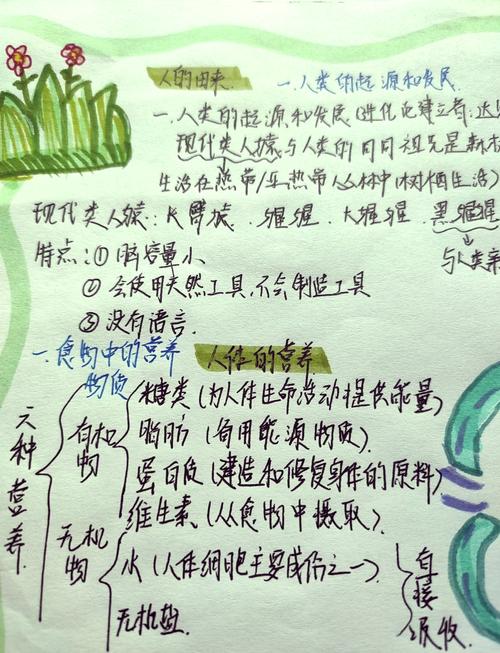 人的由来 一.人类的起源和发展
一.人类的起源和发展(进化论建立者:达
现代类人猿与人类的共同祖先是森林
生活在热带/亚热带丛林中(树栖生活)
现代类人猿:长臂猿.猩猩.大猩猩.黑猩猩
与人类亲
特点:①脑容量小
②会使用天然工具.不会制造工具
③没有语言.
一.食物中的营养物质 人体的营养
六种营养.
有机物
糖类(为人体生命活动提供能量)
脂肪(备用能源物质)
蛋白质(建造和修复身体的原料)
维生素.(从食物中摄取)
无机物
水(人体细胞主要成份之一)
无机盐
直接吸收.